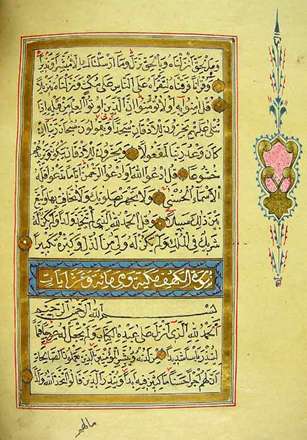 وبالحق انزلناه وبالحق نزل وما ارسلناك الا مبشرا ونذيرا
وقرآنا فرقناه لتقرأه على الناس على مكث ونزلناه تنزيلا
قل آمنوا به او لا تؤمنوا ان الذين اوتوا العلم من قبله اذا
يتلى عليهم يخرون للاذقان سجدا ويقولون سبحان ربنا ان
كان وعد ربنا لمفعولا ويخرون للاذقان يبكون ويزيدهم
خشوعا قل ادعوا الله او ادعوا الرحمن ايا ما تدعوا فله
الاسماء الحسنى ولا تجهر بصلاتك ولا تخافت بها وابتغ
بين ذلك سبيلا وقل الحمد لله الذي لم يتخذ ولدا ولم يكن له
شريك في الملك ولم يكن له ولي من الذل وكبره تكبيرا
سورة الكهف مكية وهي مائة وعشر ايات
بسم الله الرحمن الرحيم
الحمد لله الذي انزل على عبده الكتاب ولم يجعل له عوجا قيما
لينذر بأسا شديدا من لدنه ويبشر المؤمنين الذين يعملون الصالحات
ان لهم اجرا حسنا ماكثين فيه ابدا وينذر الذين قالوا اتخذ الله ولدا
مالهم